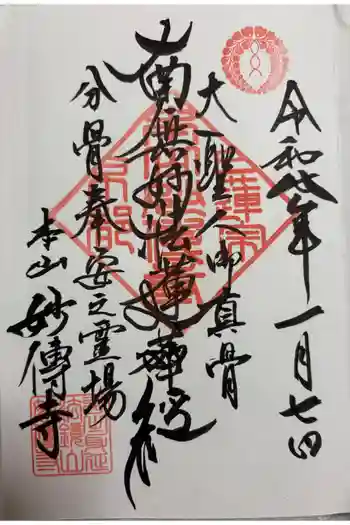 令和七年一月七日
大聖人御真骨
南無妙法蓮華経
分骨奉安之霊場
本山妙傳寺